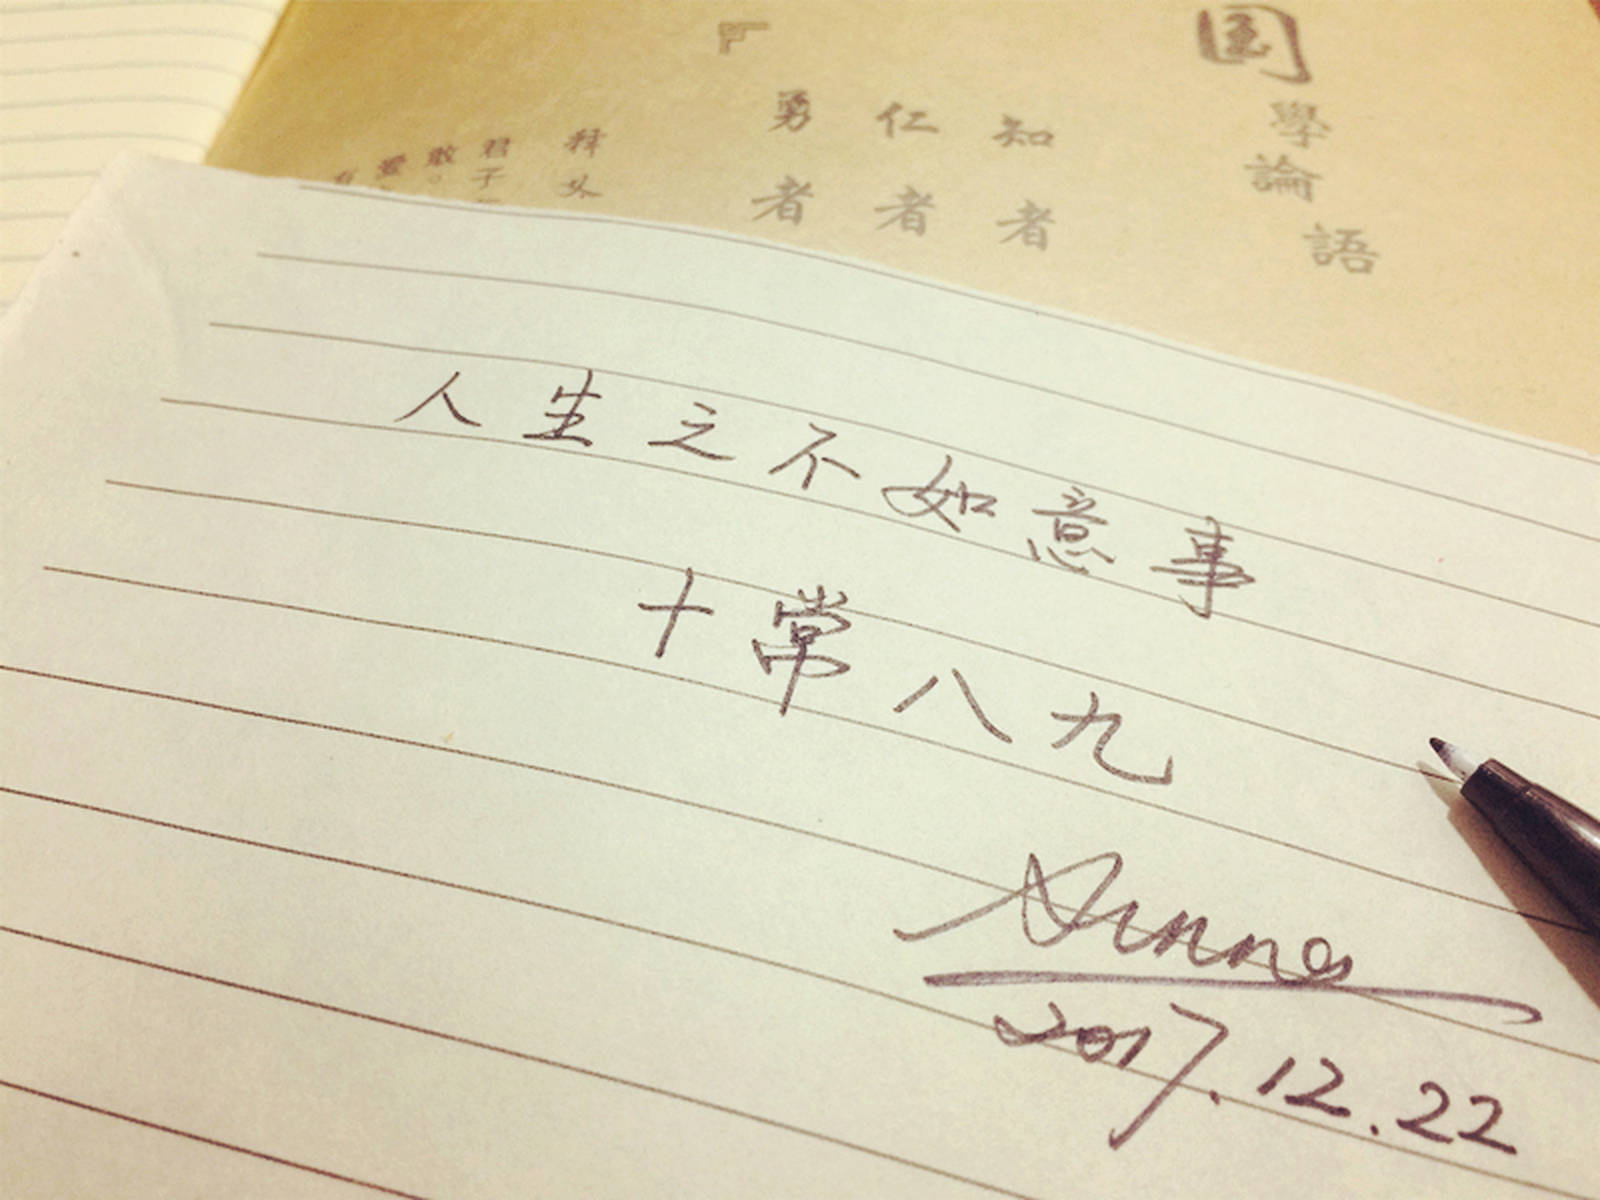 国學論語
知者
仁者
勇者
君子
敢。
愛
人生之不如意事
十常八九
2017.12.22